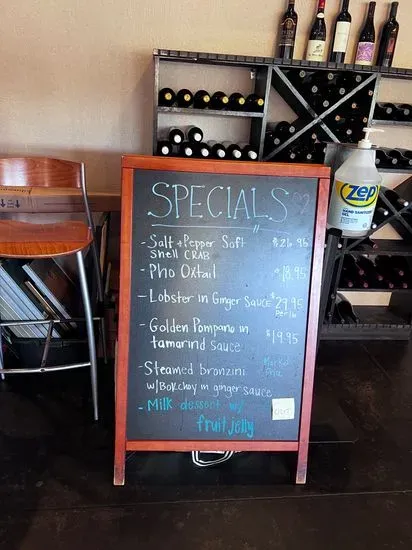 SPECIALS
- Salt + Pepper Soft $26.95
Shell CRAB
- Pho Oxtail $18.95
- Lobster in Ginger Sauce $29.95
Per Lb
- Golden Pompano in $19.95
tamarind sauce
- Steamed bronzini Market
w/Bokchoy in ginger sauce
- Milk dessert w/ OUT
fruit jelly
Zep